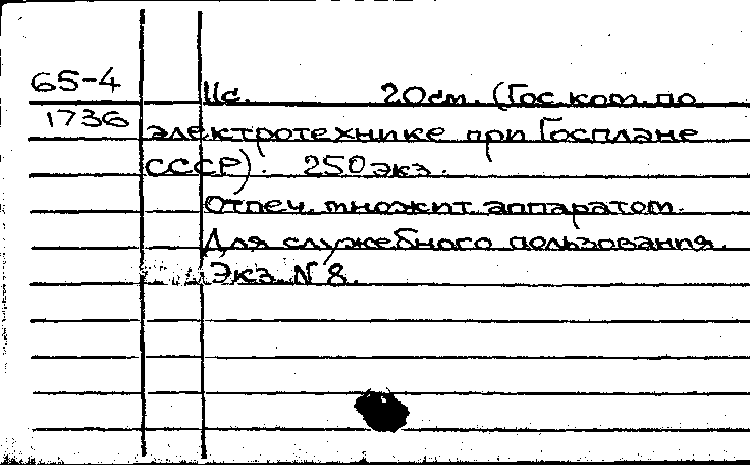 65-4
11с. 20см. (Гос. ком. по
1736
электротехнике при Госплане
СССР). 250 экз.
Отпеч. множит. аппаратом.
Для служебного пользования.
Экз. N 8.